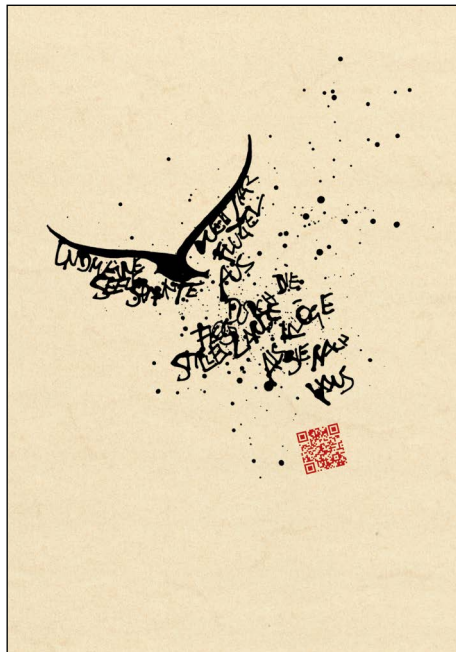 UND MEINE
SEELE SPANNTE
WEIT IHRE
FLÜGEL
AUS
FLOG DURCH DIE
STILLEN LANDE
ALS FLÖGE
SIE NACH
HAUS